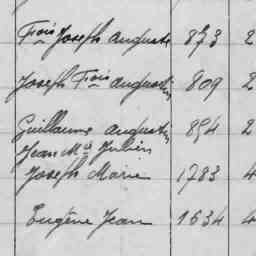 Fois Joseph Auguste 873 2
Joseph Fois Augustin 809 2
Guillaume Augustin 894 2
Jean Mie Julien
Joseph Marie 1783 4
Eugène Jean 1634 4